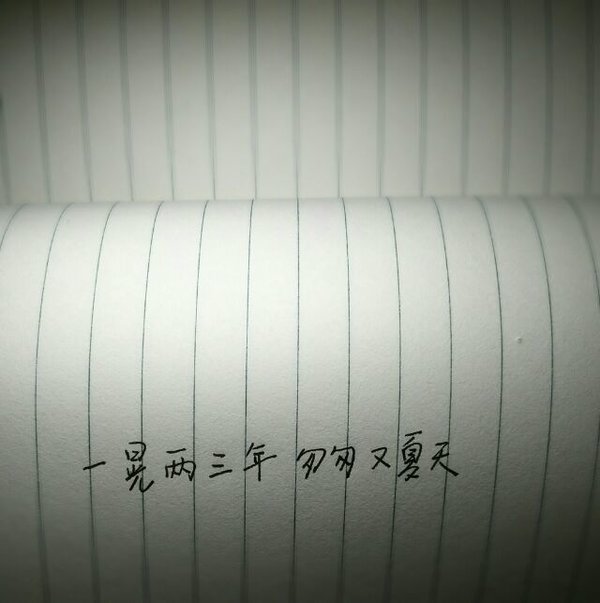 一晃两三年 匆匆又夏天